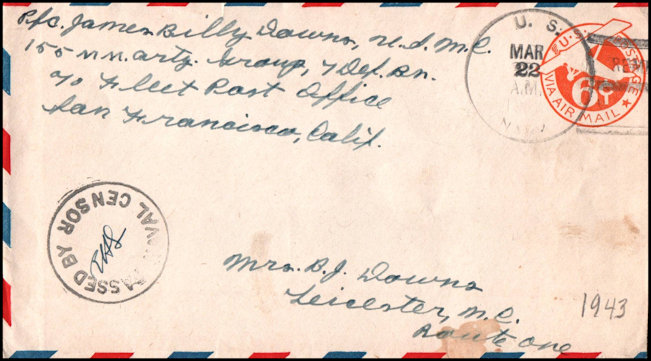 Pfc. James Billy Downs, U.S.M.C.
155 m.m. Arty. Group, 7 Def. Bn.
c/o Fleet Post Office
San Francisco, Calif.
U. S.
MAR
22
A.M.
NAVY
U.S. POSTAGE
6¢
VIA AIR MAIL
PASSED BY NAVAL CENSOR
Mrs. B. J. Downs
Leicester, N.C.
Route One
1943